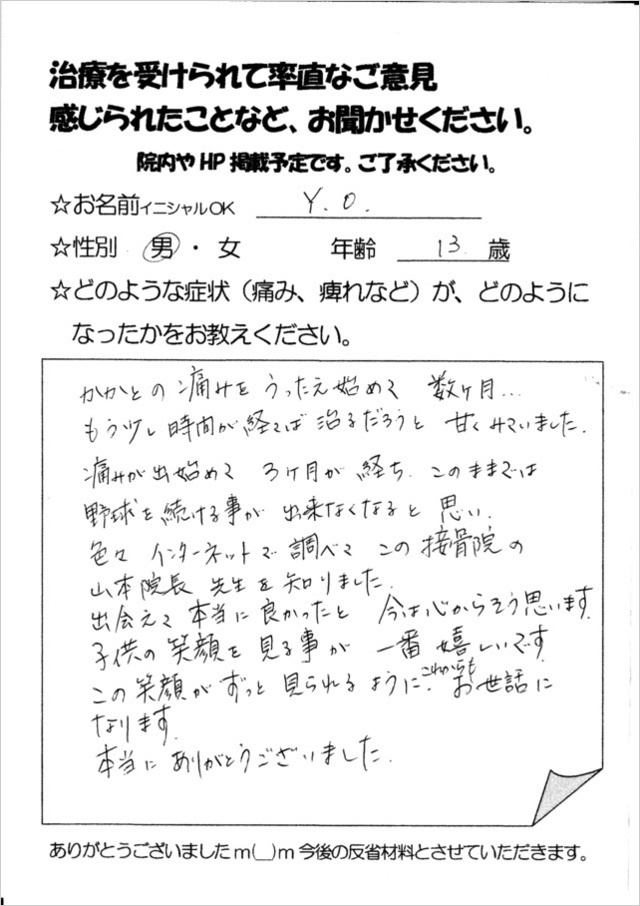 治療を受けられて率直なご意見
感じられたことなど、お聞かせください。
院内やHP掲載予定です。ご了承ください。
☆お名前イニシャルOK Y.O.
☆性別 男・女 年齢 13 歳
☆どのような症状（痛み、痺れなど）が、どのように
なったかをお教えください。
かかとの痛みをうったえ始めて 数ヶ月...
もう少し時間が経てば治るだろうと 甘くみていました.
痛みが出始めて 3ヶ月が経ち. このままでは
野球を続ける事が 出来なくなると思い.
色々 インターネットで調べて この接骨院の
山本院長 先生を知りました.
出会えて本当に良かったと 今は心からそう思います.
子供の笑顔を見る事が 一番嬉しいです.
この笑顔がずっと見られるように. これからも お世話に
なります.
本当に ありがとうございました.
ありがとうございましたm(__)m今後の反省材料とさせていただきます。